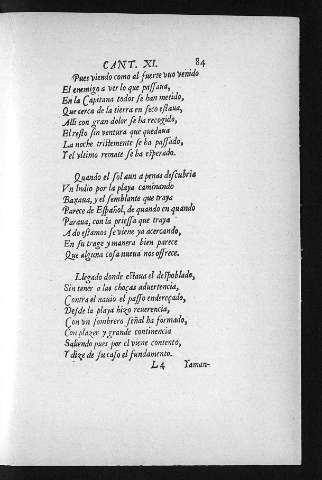 CANT. XI. 84
Pues viendo como al fuerte vuo venido
El enemigo a ver lo que passaua,
En la Capitana todos se han metido,
Que cerca de la tierra en seco estaua,
Alli con gran dolor se ha recogido,
El resto sin ventura que quedaua
La noche tristemente se ha passado,
Y el vltimo remate se ha esperado.
Quando el sol aun a penas descubria
Vn Indio por la playa caminando
Baxaua, y el semblante que traya
Parece de Español, de quando en quando
Paraua, con la priessa que traya
A do estamos se viene ya acercando,
En su trage y manera bien parece
Que alguna cosa nueua nos offrece.
Llegado donde estaua el despoblado,
Sin tener a las choças aduertencia,
Contra el nauio el passo endereçado,
Desde la playa hizo reuerencia,
Con vn sombrero señal ha formado,
Con plazer y grande continencia
Saliendo pues por el viene contento,
Y dize de su caso el fundamento.
L 4 Yaman-